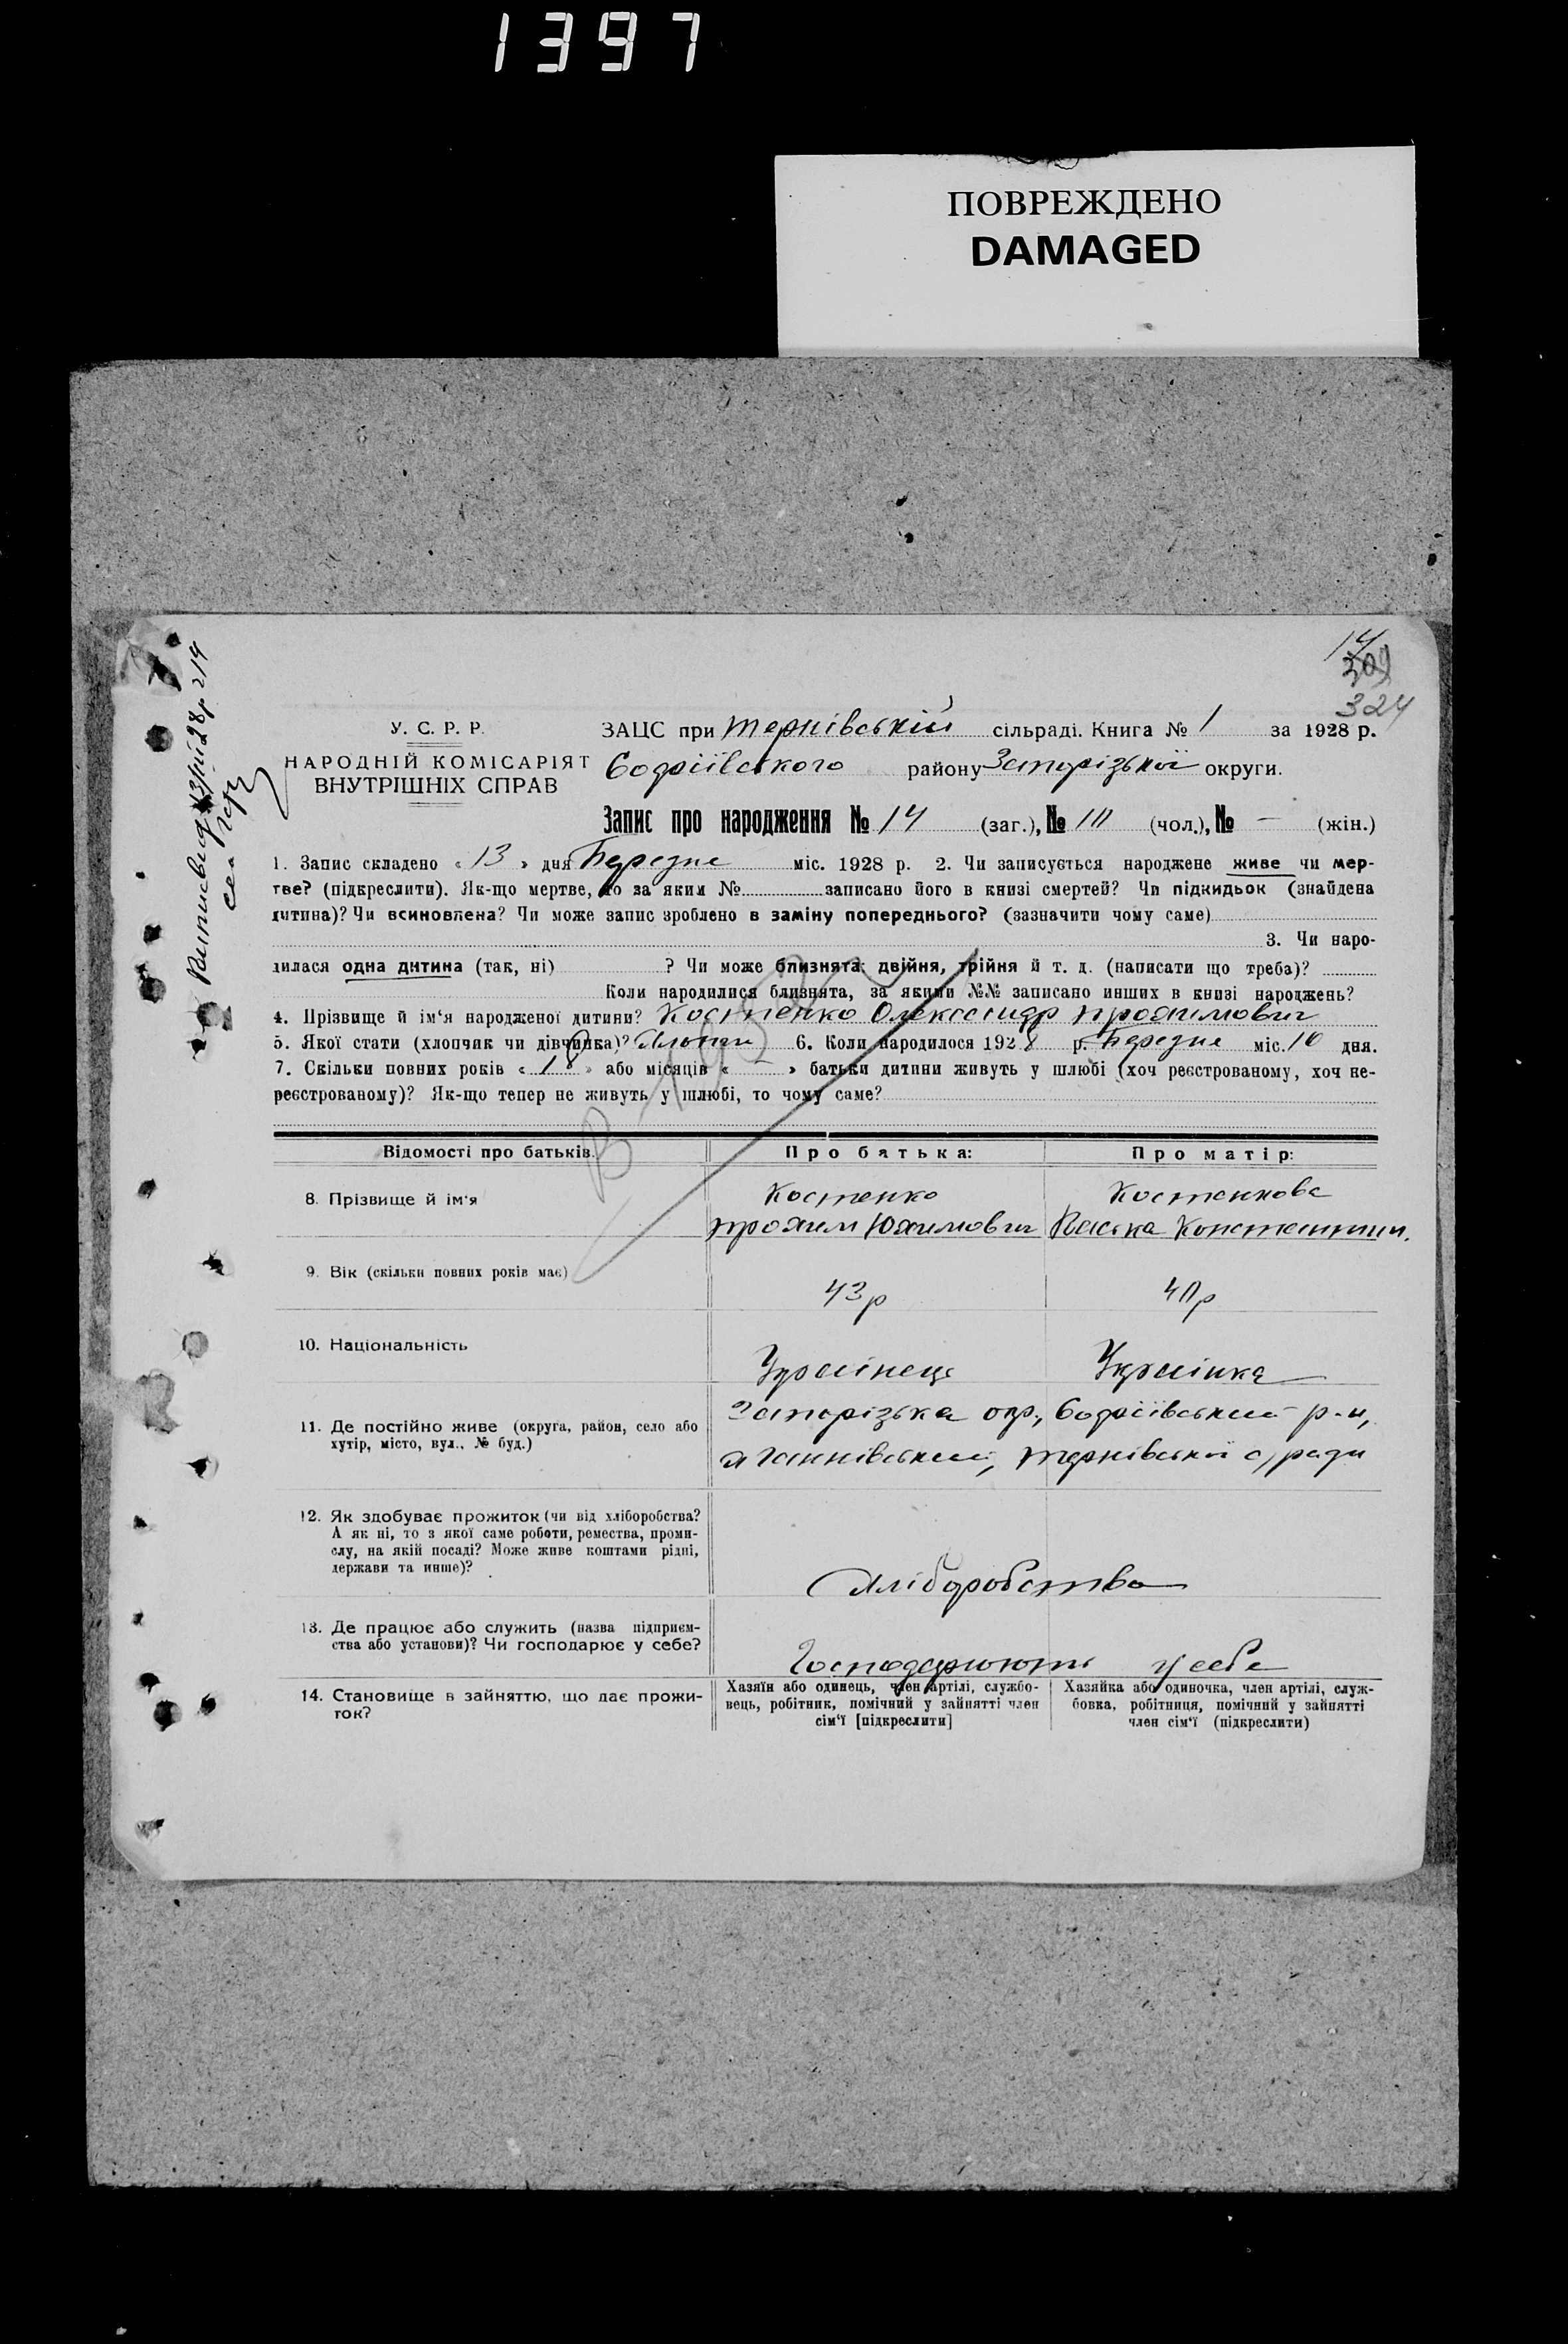 1397
ПОВРЕЖДЕНО
DAMAGED
14
309
324
У. С. Р. Р.
НАРОДНІЙ КОМІСАРІЯТ
ВНУТРІШНІХ СПРАВ
ЗАЦС при Тернівській сільраді. Книга № 1 за 1928 р.
Софіївського району Запорізької округи.
Запис про народження № 14 (заг.), № 10 (чол.), № — (жін.)
1. Запис складено « 13 » дня Березня міс. 1928 р. 2. Чи записується народжене живе чи мер-
тве? (підкреслити). Як-що мертве, то за яким № записано його в книзі смертей? Чи підкидьок (знайдена
дитина)? Чи всиновлена? Чи може запис зроблено в заміну попереднього? (зазначити чому саме)
3. Чи наро-
дилася одна дитина (так, ні) ? Чи може близнята: двійня, трійня й т. д. (написати що треба)?
Коли народилися близнята, за якими №№ записано инших в книзі народжень?
4. Прізвище й ім‘я народженої дитини? Костенко Олександр Трохимович
5. Якої стати (хлопчяк чи дівчинка)? Хлопчи 6. Коли народилося 1928 р. Березня міс. 10 дня.
7. Скільки повних років « 18 » або місяців « – » батьки дитини живуть у шлюбі (хоч реєстрованому, хоч не-
реєстрованому)? Як-що тепер не живуть у шлюбі, то чому саме?
Відомості про батьків. Про батька: Про матір:
8. Прізвище й ім‘я Костенко Костенкова
Трохим Юхимович Васька Константин.
9. Вік (скільки повних років має) 43р 40р
10. Національність Украінець Украінка
11. Де постійно живе (округа, район, село або
хутір, місто, вул., № буд.)
Запорізька окр., Софіївський р-н,
х Ганнівський, Тернівської с/ради
12. Як здобуває прожиток (чи від хліборобства?
А як ні, то з якої саме роботи, ремества, проми-
слу, на якій посаді? Може живе коштами рідні,
держави та инше)?
Хліборобство
13. Де працює або служить (назва підприєм-
ства або установи)? Чи господарює у себе?
Господарюють у себе
14. Становище в зайняттю, що дає прожи-
ток?
Хазяїн або одинець, член артілі, службо-
вець, робітник, помічний у зайнятті член
сім‘ї [підкреслити]
Хазяйка або одиночка, член артілі, служ-
бовка, робітниця, помічний у зайнятті
член сім‘ї (підкреслити)